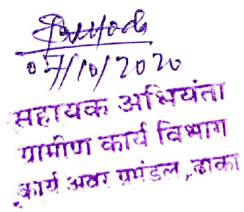 07/10/2020
सहायक अभियंता
ग्रामीण कार्य विभाग
कार्य अवर प्रमंडल, ढाका